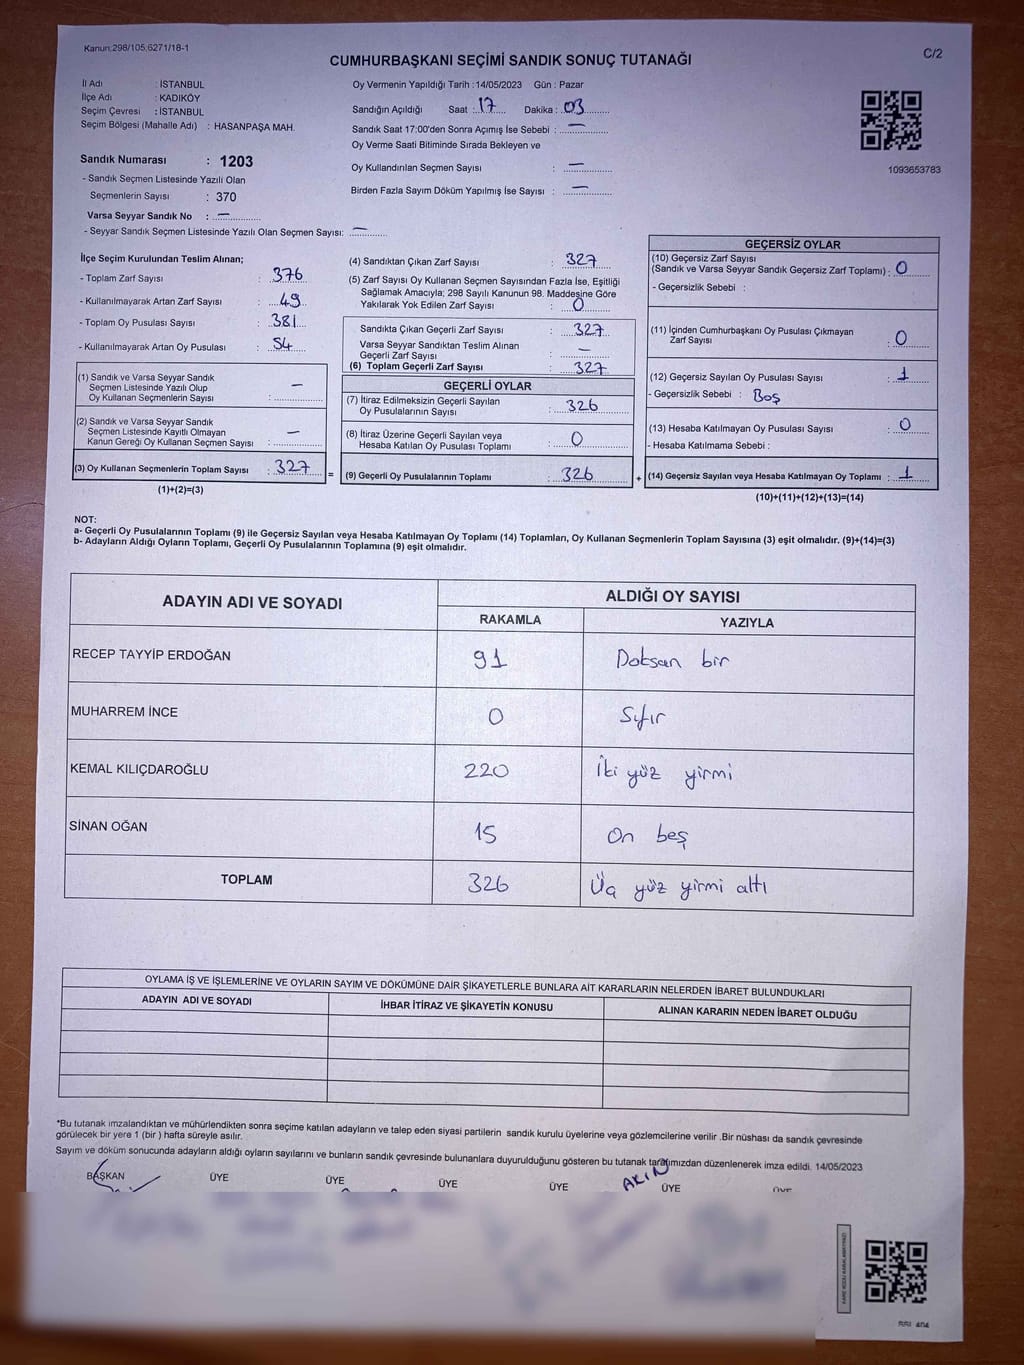 Kanun:298/105,6271/18-1
C/2
CUMHURBAŞKANI SEÇİMİ SANDIK SONUÇ TUTANAĞI
İl Adı : İSTANBUL
İlçe Adı : KADIKÖY
Seçim Çevresi : İSTANBUL
Seçim Bölgesi (Mahalle Adı) : HASANPAŞA MAH.
Sandık Numarası : 1203
- Sandık Seçmen Listesinde Yazılı Olan
Seçmenlerin Sayısı : 370
Varsa Seyyar Sandık No : —
- Seyyar Sandık Seçmen Listesinde Yazılı Olan Seçmen Sayısı: —
Oy Vermenin Yapıldığı Tarih : 14/05/2023 Gün : Pazar
Sandığın Açıldığı Saat : 17 Dakika : 03
Sandık Saat 17:00'den Sonra Açımış İse Sebebi : —
Oy Verme Saati Bitiminde Sırada Bekleyen ve
Oy Kullandırılan Seçmen Sayısı : —
Birden Fazla Sayım Döküm Yapılmış İse Sayısı : —
1093653783
İlçe Seçim Kurulundan Teslim Alınan;
- Toplam Zarf Sayısı : 376
- Kullanılmayarak Artan Zarf Sayısı : 49
- Toplam Oy Pusulası Sayısı : 381
- Kullanılmayarak Artan Oy Pusulası : 54
(1) Sandık ve Varsa Seyyar Sandık
Seçmen Listesinde Yazılı Olup
Oy Kullanan Seçmenlerin Sayısı : —
(2) Sandık ve Varsa Seyyar Sandık
Seçmen Listesinde Kayıtlı Olmayan
Kanun Gereği Oy Kullanan Seçmen Sayısı : —
(3) Oy Kullanan Seçmenlerin Toplam Sayısı : 327
(1)+(2)=(3)
=
(4) Sandıktan Çıkan Zarf Sayısı : 327
(5) Zarf Sayısı Oy Kullanan Seçmen Sayısından Fazla İse, Eşitliği
Sağlamak Amacıyla; 298 Sayılı Kanunun 98. Maddesine Göre
Yakılarak Yok Edilen Zarf Sayısı : 0
Sandıkta Çıkan Geçerli Zarf Sayısı : 327
Varsa Seyyar Sandıktan Teslim Alınan
Geçerli Zarf Sayısı : —
(6) Toplam Geçerli Zarf Sayısı : 327
GEÇERLİ OYLAR
(7) İtiraz Edilmeksizin Geçerli Sayılan
Oy Pusulalarının Sayısı : 326
(8) İtiraz Üzerine Geçerli Sayılan veya
Hesaba Katılan Oy Pusulası Toplamı : 0
(9) Geçerli Oy Pusulalarının Toplamı : 326
+
GEÇERSİZ OYLAR
(10) Geçersiz Zarf Sayısı
(Sandık ve Varsa Seyyar Sandık Geçersiz Zarf Toplamı) : 0
- Geçersizlik Sebebi :
(11) İçinden Cumhurbaşkanı Oy Pusulası Çıkmayan
Zarf Sayısı : 0
(12) Geçersiz Sayılan Oy Pusulası Sayısı : 1
- Geçersizlik Sebebi : Boş
(13) Hesaba Katılmayan Oy Pusulası Sayısı : 0
- Hesaba Katılmama Sebebi :
(14) Geçersiz Sayılan veya Hesaba Katılmayan Oy Toplamı : 1
(10)+(11)+(12)+(13)=(14)
NOT:
a- Geçerli Oy Pusulalarının Toplamı (9) ile Geçersiz Sayılan veya Hesaba Katılmayan Oy Toplamı (14) Toplamları, Oy Kullanan Seçmenlerin Toplam Sayısına (3) eşit olmalıdır. (9)+(14)=(3)
b- Adayların Aldığı Oyların Toplamı, Geçerli Oy Pusulalarının Toplamına (9) eşit olmalıdır.
ADAYIN ADI VE SOYADI
ALDIĞI OY SAYISI
RAKAMLA YAZIYLA
RECEP TAYYİP ERDOĞAN 91 Doksan bir
MUHARREM İNCE 0 Sıfır
KEMAL KILIÇDAROĞLU 220 İki yüz yirmi
SİNAN OĞAN 15 On beş
TOPLAM 326 Üç yüz yirmi altı
OYLAMA İŞ VE İŞLEMLERİNE VE OYLARIN SAYIM VE DÖKÜMÜNE DAİR ŞİKAYETLERLE BUNLARA AİT KARARLARIN NELERDEN İBARET BULUNDUKLARI
ADAYIN ADI VE SOYADI İHBAR İTİRAZ VE ŞİKAYETİN KONUSU ALINAN KARARIN NEDEN İBARET OLDUĞU
*Bu tutanak imzalandıktan ve mühürlendikten sonra seçime katılan adayların ve talep eden siyasi partilerin sandık kurulu üyelerine veya gözlemcilerine verilir .Bir nüshası da sandık çevresinde
görülecek bir yere 1 (bir ) hafta süreyle asılır.
Sayım ve döküm sonucunda adayların aldığı oyların sayılarını ve bunların sandık çevresinde bulunanlara duyurulduğunu gösteren bu tutanak tarafımızdan düzenlenerek imza edildi. 14/05/2023
BAŞKAN ÜYE ÜYE ÜYE ÜYE AKIN ÜYE ÜYE